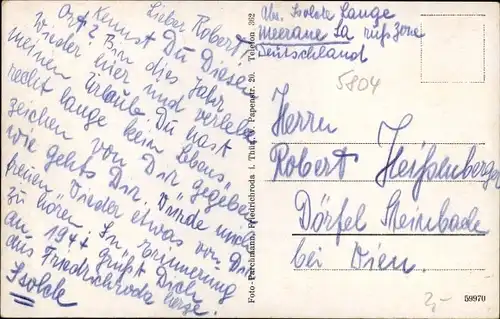 Lieber Robert
Kennst Du Diesen
Ort? Bin dies Jahr
wieder hier und verlebe
meinen Urlaub. Du hast
recht lange kein Lebens"
zeichen von Dir gegeben
wie gehts Dir. Würde mich
freuen wieder etwas von Dir
zu hören. In Erinnerung
an 194 grüßt Dich
aus Friedrichroda herzl.
Isolde
Foto-Parchmann, Friedrichroda i. Thür., v. Papenstr. 20. Telefon 362
Abs. Isolde Lange
Meerane Sa russ Zone
Deutschland
5804
Herrn
Robert Heißenberger
Dörfel Steinbach
bei Wien.
2,-
59970